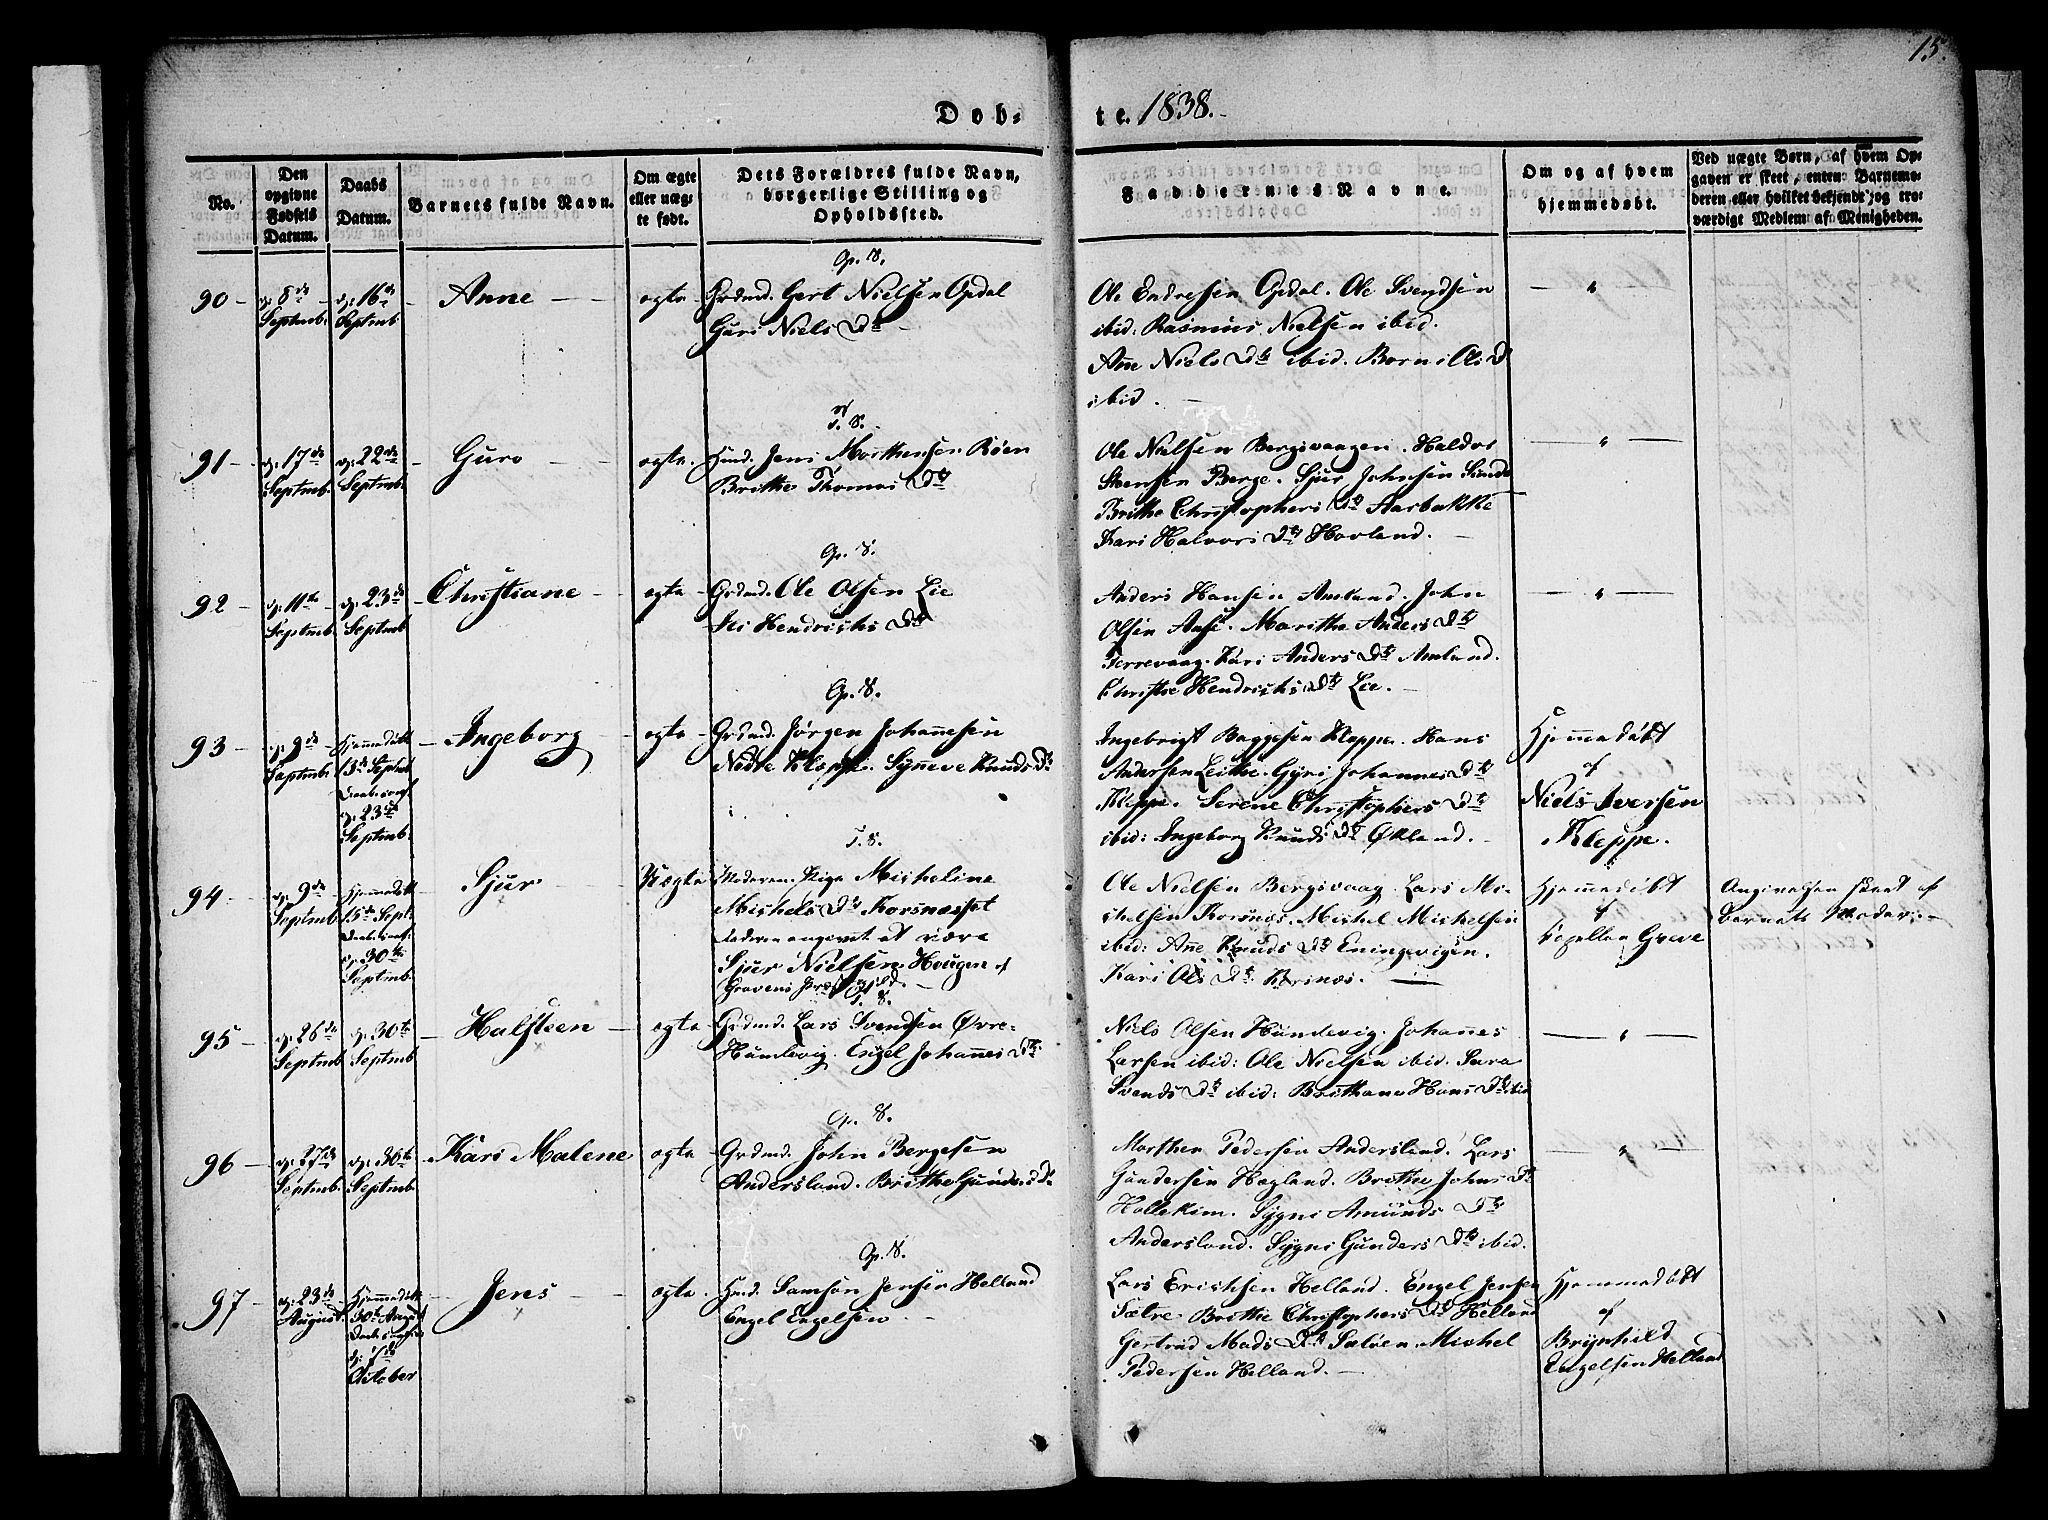 15.
Dob-
te. 1838.
No.
Den opgivne Fødsels Datum.
Daabs Datum.
Barnets fulde Navn.
Om ægte eller uægte født.
Dets Forældres fulde Navn, borgerlige Stilling og Opholdssted.
Faddernes Navne.
Om og af hvem hjemmedøbt.
Ved uægte Børn, af hvem Opgaven er skeet, enten Barnemoderen eller hvilket bekjendt og troværdigt Medlem af Menigheden.
Op. S.
90 - d: 8de Septmb. d: 16de Septmb. Anne - ægte Grdmd. Gert Nielsen Opdal
Guri Niels Dtr
Ole Endresen Opdal. Ole Svendsen
ibid: Rasmus Nielsen ibid.
Añe Niels Dtr ibid. Borni Ols D
ibid.
T. S.
91 - d: 17de Septmb. d: 22de Septmb. Guro - ægte. Huusmd. Jens Morthensen Røen
Brithe Thomas Dtr
Ole Nielsen Bergsvaagen. Haldor
Steensen Berge. Sjur Johnsen
Brithe Christophers Dtr Aarbakke
Kari Halvors Dtr Hovland.
Op. S.
92 - d: 11te Septmb. d: 23de Septmb. Christiane - ægte - Grdmd. Ole Olsen Lie
Hendrichs Dtr
Anders Hansen Amland. John
Olsen Aase. Marithe Anders Dtr
Terrevaag. Kari Anders Dtr Amland.
Christie Hendrichs Dtr Lie.
Op. S.
93 - d: 9de Septmb. Hjemmedøbt 13de Septmb. d: 23de Septmb. Ingeborg - ægte - Grdmd. Jørgen Johañesen
Nedre Kleppe. Syñeve Knuds Dtr
Ingebrigt Baggesen Kleppe. Hans
Andersen Leithe. Gyri Johannes Dtr
Kleppe. Serene Christophers Dtr
ibid: Ingeborg Knuds Dtr Økland.
Hjemmedøbt
af
Niels Iversen
Kleppe.
T. S.
94 - d: 9de Septmb. Hjemmedøbt 15de Sept: d: 30te Septmb. Sjur - Uægte Moderen: Pige Micheline
Michels Dtr Korsnæsset
Faderen angivet at være
Sjur Nielsen Hougen af
Gravens Præstegjeld.
Ole Nielsen Bergsvaag. Lars Mi-
chelsen Korsnæs. Michel Michelsen
ibid: Añe Knuds Dtr Eningevigen.
Kari Ols Dtr Korsnæs.
Hjemmedøbt
af
Capellan Greve
Angivelsen skeet af
Barnets Moder.
T. S.
95 - d: 26de Septmb. d: 30te Septmb. Halsteen - ægte - Grdmd. Lars Svendsen Øvre-
Hundevig. Engel Johañes Dtr
Niels Olsen Hundevig. Johañes
Larsen ibid: Ole Nielsen ibid. Sara
Svends Dtr ibid: Brithane Hans Dtr ibid
Op. S.
96 - d: 27de Septmb. d: 30te Septmb. Kari Malene ægte - Grdmd. John Bergesen
Andersland. Brithe Gunders Dtr
Morthen Pedersen Andersland. Lars
Gundersen Hagland. Brithe Johns Dtr
Hollekim. Sygni Amunds Dtr
Andersland. Sygni Gunders Dtr ibid.
Op. S.
97 - d: 23de August. Hjemmedøbt 30te August d: 7de October Jens - ægte. Huusmd. Samson Jensen Helland
Engel Engelsen
Lars Erichsen Helland. Engel Jensen
Sætre. Brithe Christophers Dtr Helland
Gertrud Mads Dtr Saløen Michel
Pedersen Helland.
Hjemmedøbt
af
Brynhild
Engelsen Helland